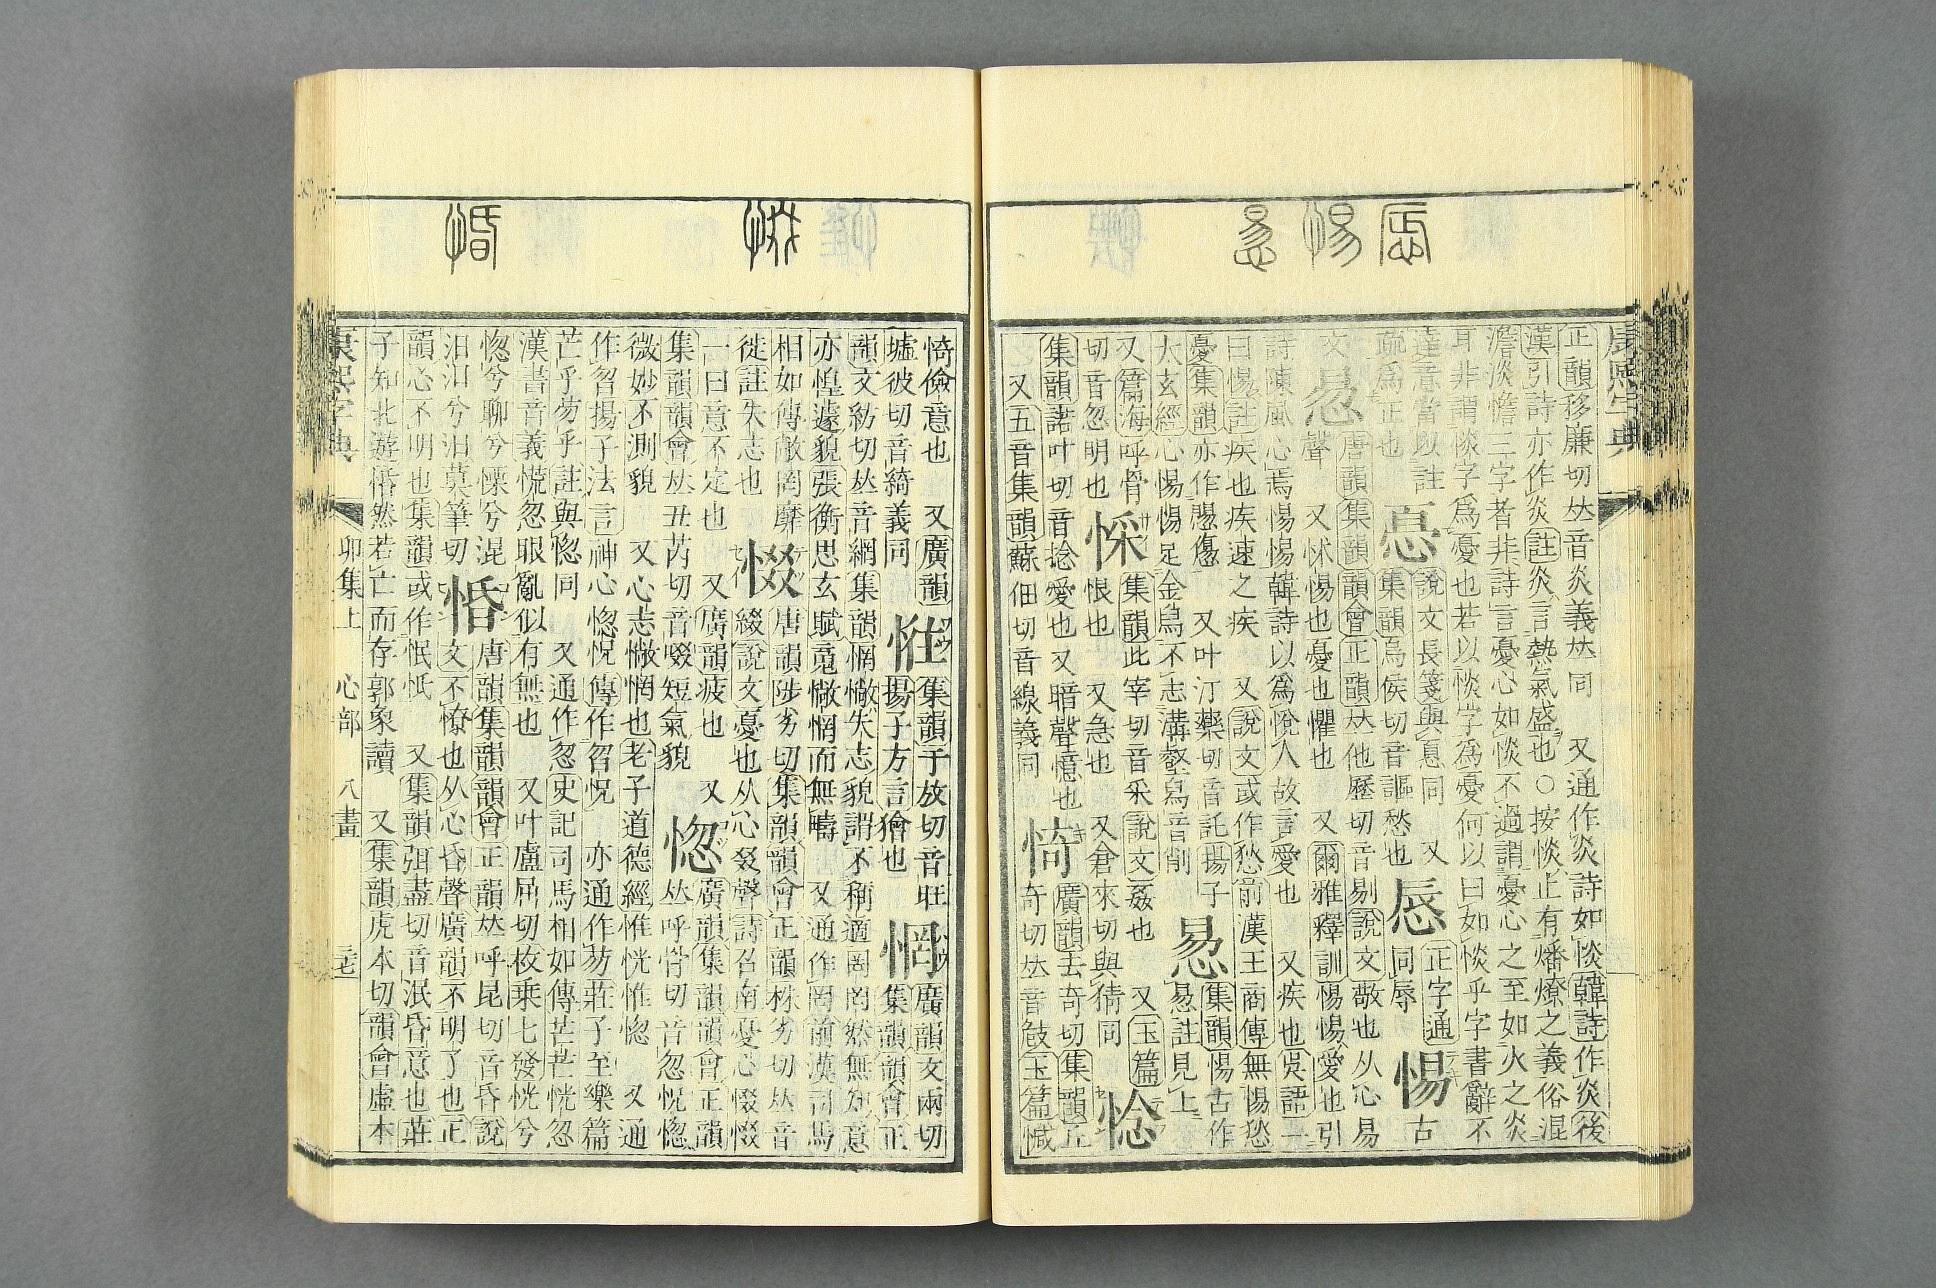 康熙字典
正韻移廉切𠀤音炎義𠀤同 又通作炎詩如惔韓詩作炎後
漢引詩亦作炎註炎言熱氣盛也○按惔止有燔燎之義俗混
澹淡憺三字者非詩言憂心如惔不過謂憂心之至如火之炎
耳非謂惔字爲憂也若以惔字爲憂何以曰如惔乎字書辭不
達意當以註
疏爲正也
惪
說文長箋與惪同 又
集韻烏侯切音謳愁也
惖
正字通
同辱
惕
古
文悐
唐韻集韻韻會正韻𠀤他歷切音剔說文敬也从心易
聲 又怵惕也憂也懼也 又爾雅釋訓惕惕愛也引
詩陳風心焉惕惕韓詩以爲悅人故言愛也 又疾也吳語一
曰惕註疾也疾速之疾 又說文或作愁前漢王商傳無惕愁
憂集韻亦作愓慯 又叶汀藥切音託揚子
太玄經心惕惕足金舄不志溝壑舄音削
惖
集韻惕古作
惖註見上
又篇海呼骨
切音忽明也
婇
集韻此宰切音采說文姦也 又玉篇
恨也 又急也 又倉來切與猜同
惗
集韻諾叶切音捻愛也又暗聲憶也
又五音集韻蘇佃切音線義同
㥓
廣韻去奇切集韻丘
奇切𠀤音攲玉篇㥓
㥓儉意也 又廣韻
墟彼切音綺義同
㤮
集韻于放切音旺
揚子方言獪也
惘
廣韻文兩切
集韻韻會正
韻文紡切𠀤音網集韻惘憿失志貌謂不稱適罔罔然無知意
亦惶遽貌張衡思玄賦蒐憿惘而無疇 又通作罔前漢司馬
相如傳敞罔靡
徙註失志也
惙
唐韻陟劣切集韻韻會正韻株劣切𠀤音
綴說文憂也从心叕聲詩召南憂心惙惙
一曰意不定也 又廣韻疲也 又
集韻韻會𠀤丑芮切音啜短氣貌
惚
廣韻集韻韻會正韻
𠀤呼骨切音忽怳惚
微妙不測貌 又心志憿惘也老子道德經惟恍惟惚 又通
作曶揚子法言神心惚怳傳作曶怳 亦通作芴莊子至樂篇
芒乎芴乎註與惚同 又通作忽史記司馬相如傳芒芒恍忽
漢書音義慌忽眼亂似有無也 又叶盧屈切枚乗七發恍兮
惚兮聊兮慄兮混
汩汩兮汩莫筆切
惛
唐韻集韻韻會正韻𠀤呼昆切音昏說
文不憭也从心昏聲廣韻不明了也正
韻心不明也集韻或作怋忯 又集韻弭盡切音泯昏意也莊
子知北遊惛然若亡而存郭象讀 又集韻虎本切韻會虛本
康熙字典 卯集上 心部 八畫